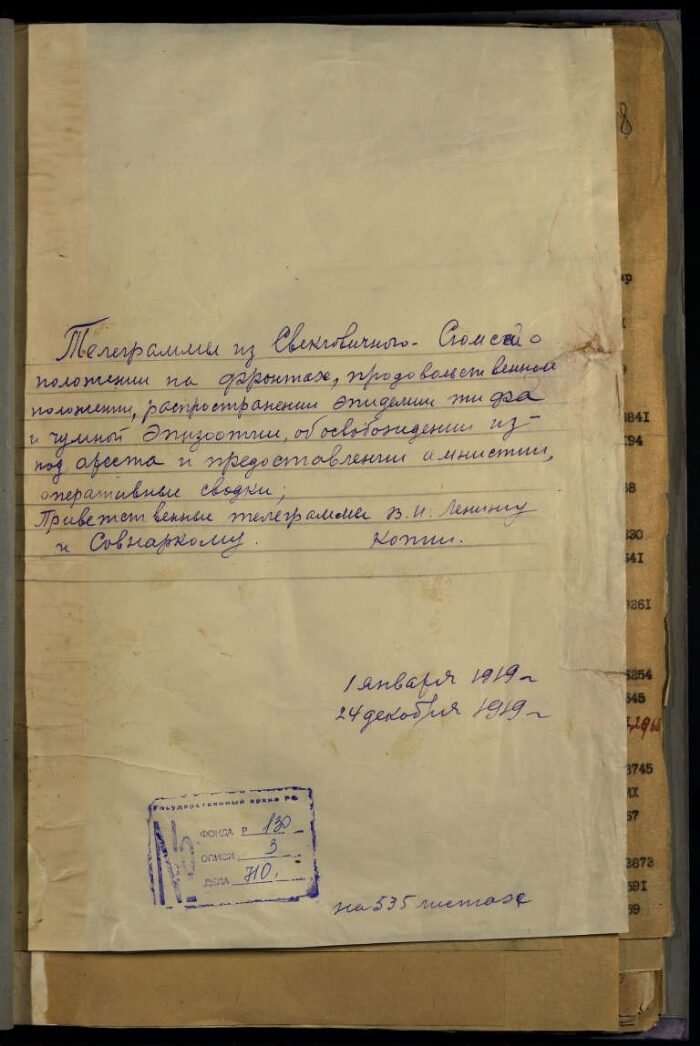 Телеграммы из
о
положении на фронтах, продовольственном
положении, распространении эпидемии тифа
и чумной эпизоотии, об освобождении из-
под ареста и предоставлении амнистии,
оперативные сводки;
Приветственные телеграммы В.И. Ленину
и Совнаркому. Копии.
1 января 1919 г
24 декабря 1919 г
Государственный архив РФ
№
ФОНДА Р 130
ОПИСИ 3
ДЕЛА 710.
на 535 листах
8
ар
884I
I94
68
830
64I
926I
6254
545
8745
ИХ
67
8873
59I
69